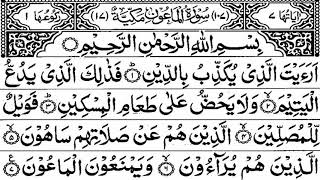 اٰیاتها ٧ (١٠٧) سُوْرَةُ الْمَاعُوْنِ مَكِّیَّةٌ (١٧) رکوعها ١
بِسْمِ اللّٰهِ الرَّحْمٰنِ الرَّحِیْمِ
اَرَءَیْتَ الَّذِیْ یُكَذِّبُ بِالدِّیْنِ ۝١ فَذٰلِكَ الَّذِیْ یَدُعُّ
الْیَتِیْمَ ۝٢ وَلَا یَحُضُّ عَلٰی طَعَامِ الْمِسْكِیْنِ ۝٣ فَوَیْلٌ
لِّلْمُصَلِّیْنَ ۝٤ الَّذِیْنَ هُمْ عَنْ صَلَاتِهِمْ سَاهُوْنَ ۝٥
الَّذِیْنَ هُمْ یُرَآءُوْنَ ۝٦ وَیَمْنَعُوْنَ الْمَاعُوْنَ ۝٧